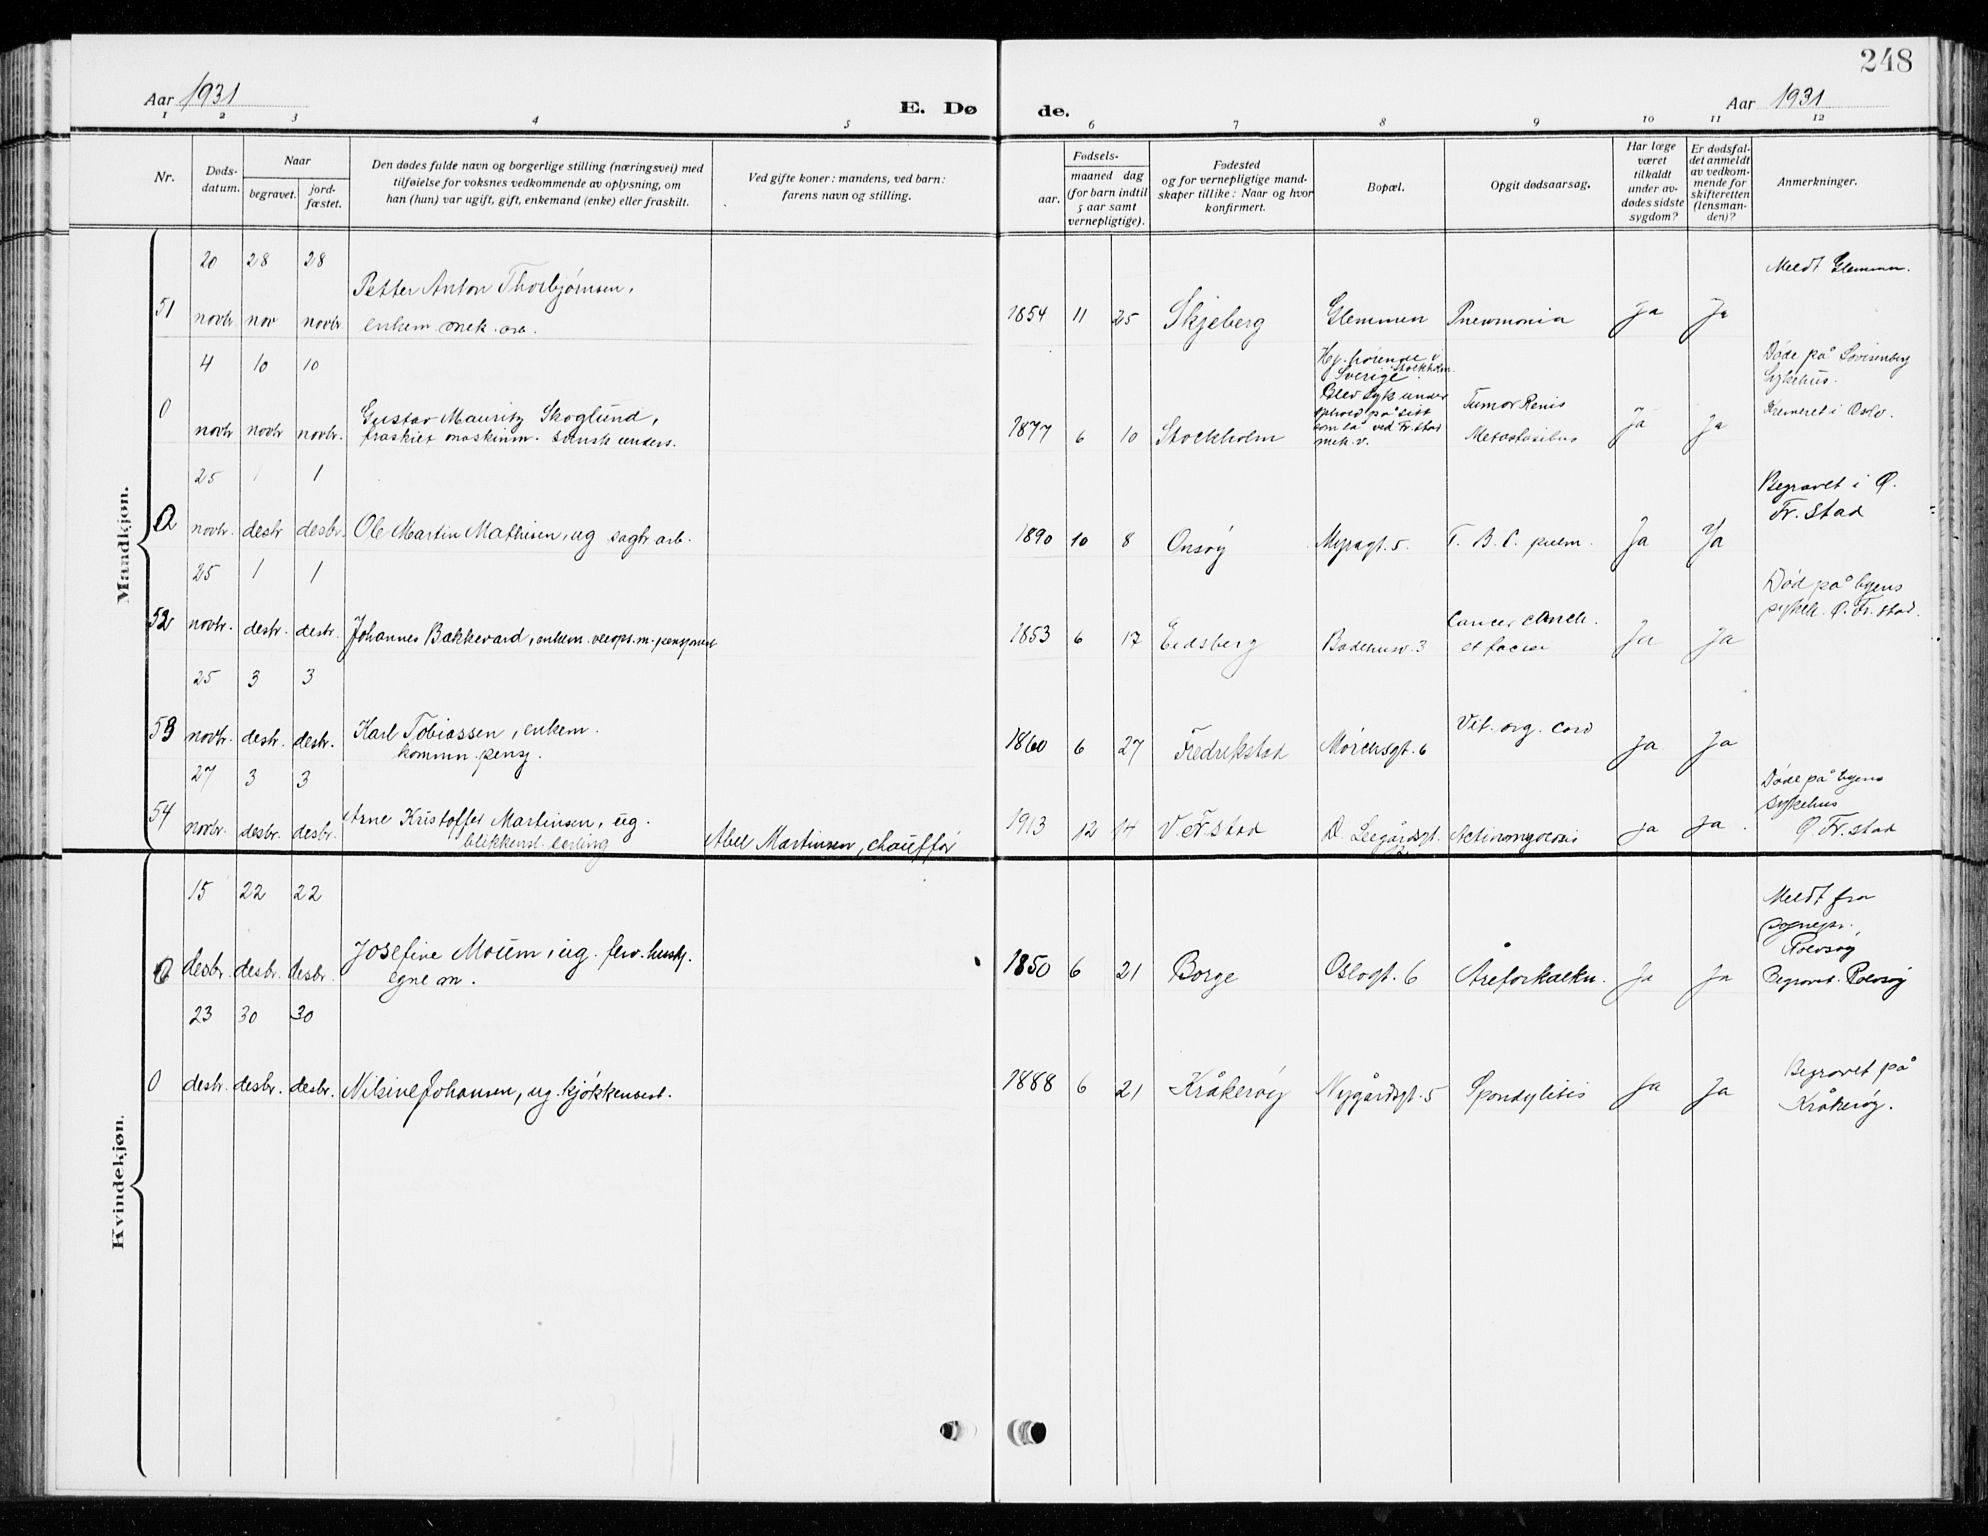 248
Aar 1931
E. Dø
de.
Aar 1931
1 2 3 4 5 6 7 8 9 10 11 12
Nr.
Døds-
datum.
Naar
begravet.
jord-
fæstet.
Den dødes fulde navn og borgerlige stilling (næringsvei) med
tilføielse for voksnes vedkommende av oplysning, om
han (hun) var ugift, gift, enkemand (enke) eller fraskilt.
Ved gifte koner: mandens, ved barn:
farens navn og stilling.
Fødsels-
aar.
maaned dag
(for barn indtil
5 aar samt
vernepligtige).
Fødested
og for vernepligtige mand-
skaper tillike: Naar og hvor
konfirmert.
Bopæl.
Opgit dødsaarsag.
Har læge
været
tilkaldt
under av-
dødes sidste
sygdom?
Er dødsfal-
det anmeldt
av vedkom-
mende for
skifteretten
(lensman-
den)?
Anmerkninger.
Mandkjøn.
20 28 28
Meldt Glemmen.
Petter Anton Thorbjørnsen,
51 novbr. nov novbr enkem. mek. arb. 1854 11 25 Skjeberg Glemmen Pneumonia Ja Ja
4 10 10
Hj. hörende i
Sverige Stockholm.
Blev syk under
ophold på sitt
som lå ved Fr.stad
mek. v.
Døde på Lovisenberg
Sykehus.
Kremeret i Oslo.
0 novbr novbr novbr. Gustav Mauritz Skoglund,
fraskiet maskinm. svensk unders. 1877 6 10 Stockholm
Tumor Renis
Metastasibus Ja Ja
25 1 1
Begravet i Ø.
Fr.stad
0 novbr. desbr desbr. Ole Martin Mathisen, ug sagbr arb. 1890 10 8 Onsøy Myragt. 5. T. B. C. pulm. Ja Ja
25 1 1
Død på byens
sykeh. Ø. Fr.stad.
52 novbr. desbr. desbr. Johannes Bakkevard, enkem. 1853 6 17 Eidsberg Badehusv. 3 Cancer
et faciei Ja Ja
25 3 3
53 novbr. desbr. desbr. Karl Tobiassen, enkem.
kommun. pensj. 1860 6 27 Fredrikstad Mörchsgt. 6 Vit. org. cord Ja Ja
27 3 3
Døde på byens
sykehus
Ø. Fr.stad
54 novbr. desbr. desbr. Arne Kristoffer Martinsen, ug.
blikkensl. lærling Abel Martinsen, chauffør 1913 12 14 V. Fr.stad D. Leegårdsgt. Actinomycosis Ja Ja.
Kvindekjøn.
15 22 22
Meldt fra
sognepr.
Rolvsøy
Begravet Rolvsøy
0 desbr. desbr. desbr. Josefine Moum, ug. fhv. hush.
egne m. 1850 6 21 Borge Oslogt. 6 Åreforkalkn. Ja Ja
23 30 30
Begravet på
Kråkerøy.
0 desbr. desbr. desbr. Nilsine Johansen, ug. kjøkkenbest. 1888 6 21 Kråkerøy Nygårdsgt. 5 Spondylitis Ja Ja